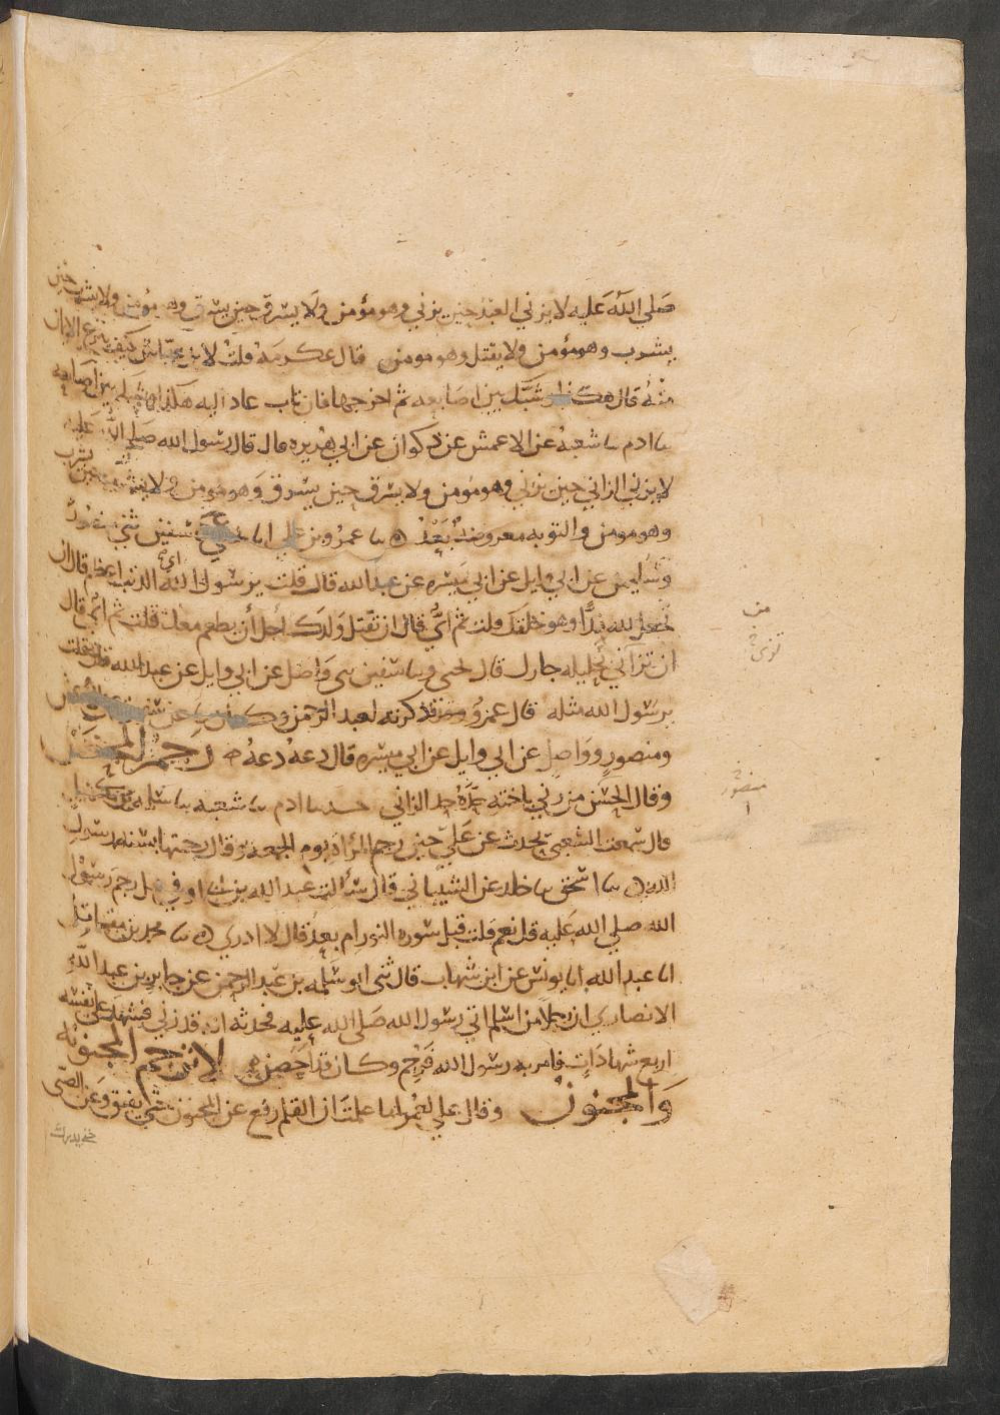 صلي الله عليه لا يزني العبد حين يزني وهو مؤمن ولا يسرق حين يسرق وهو مؤمن ولا يشرب حين
يشرب وهو مؤمن ولا يقتل وهو مومن قال عكرمه قلت لابن عباس كيف ينزع الايمان
منه قال هكذا وشبك بين اصابعه ثم اخرجها فان تاب عاد اليه هكذا وشبك بين اصابعه
سا ادم سا شعبه عن الاعمش عن ذكوان عن ابي هريره قال قال رسول الله صلي الله عليه
لا يزني الزاني حين يزني وهو مومن ولا يسرق حين يسرق وهو مومن ولا يشرب حين يشرب
وهو مومن والتوبه معروضه بعد سا عمرو بن علي سا يحيي سا سفين ثني منصور
وسليمن عن ابي وايل عن ابي ميسره عن عبد الله قال قلت يرسول الله اي الذنب اعظم قال ان
تجعل لله ندا وهو خلقك قلت ثم اي قال ان تقتل ولدك اجل ان يطعم معك قلت ثم اي قال
ان تزاني بحليله جارك قال يحيي وسا سفين سي واصل عن ابي وايل عن عبد الله قال قلت
يرسول الله مثله قال عمرو فذكرته لعبد الرحمن وكان سا عن سفين عن الاعمش
ومنصور وواصل عن ابي وايل عن ابي ميسره قال دعه دعه رجم المحصن
وقال الحسن من زني باخته حده حد الزاني حدسا ادم سا شعبه سا سلمه بن كهيل
قال سمعت الشعبي يحدث عن علي حين رجم المراه يوم الجمعه وقال رجمتها بسنه رسول
الله سا اسحق سا خلد عن الشيباني قال سالت عبد الله بن ابي اوفي هل رجم رسول
الله صلي الله عليه قال نعم قلت قبل سوره النور ام بعد قال لا ادري سا محمد بن مقاتل
انا عبد الله انا يونس عن ابن شهاب قال ثني ابو سلمه بن عبد الرحمن عن جابر بن عبد الله
الانصاري ان رجلا من اسلم اتي رسول الله صلي الله عليه فحدثه انه قد زني فشهد علي نفسه
اربع شهادات فامر به رسول الله فرجم وكان قد احصن لا ترجم المجنونه
والمجنون وقال علي لعمر اما علمت ان القلم رفع عن المجنون حتي يفيق وعن الصبي
حتي يدرك
من
منصور